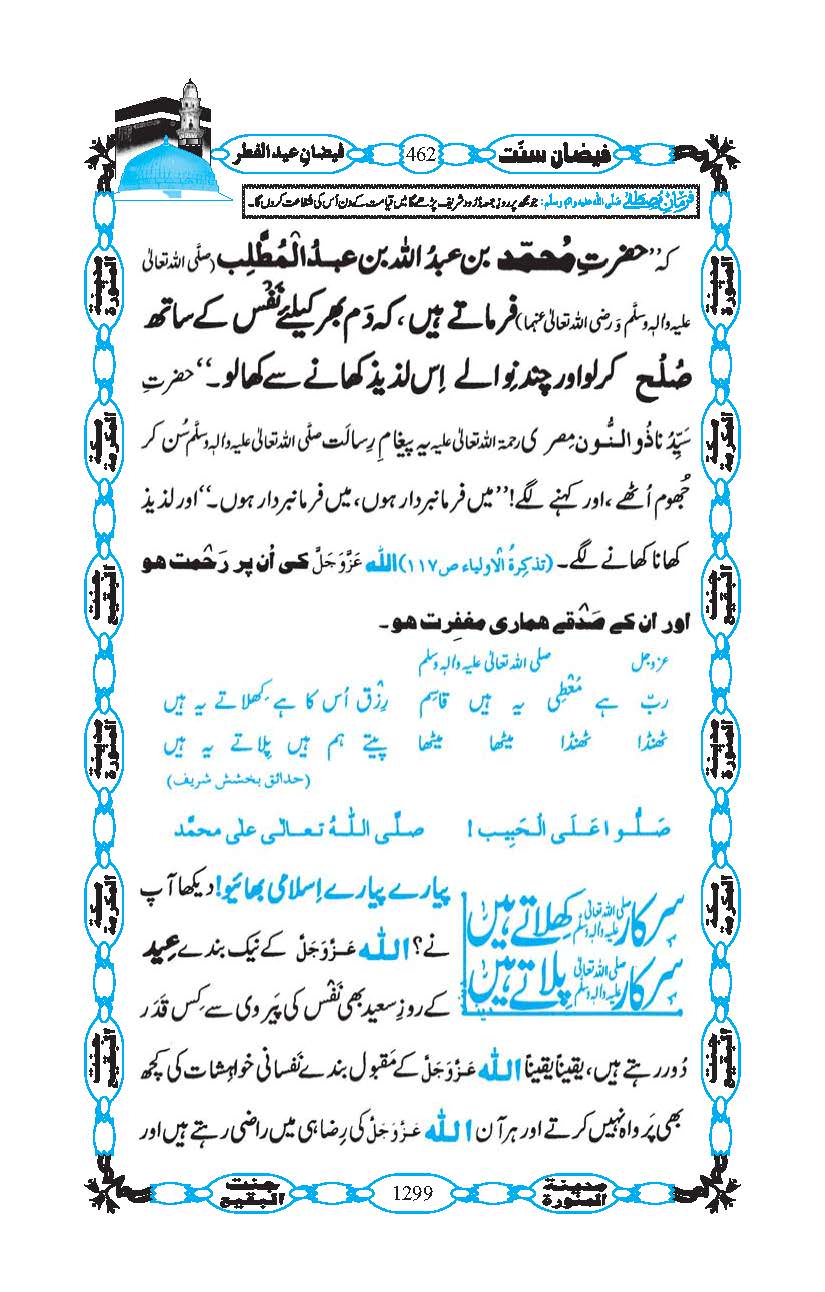 فیضان سنّت 462 فیضانِ عید الفطر
فرمانِ مصطفٰے صلی اللہ علیہ واٰلہٖ وسلم: جو مجھ پر روزِ جمعہ دُرود شریف پڑھے گا میں قیامت کے دن اُس کی شفاعت کروں گا۔
کہ ’’حضرتِ مُحمّد بن عبدُ اللہ بن عبدُ الْمُطَّلِب (صلَّی اللہ تعالیٰ
علیہ واٰلہٖ وسلَّم وَ رضی اللہ تعالیٰ عنہما) فرماتے ہیں، کہ دَم بھر کیلئے نَفْس کے ساتھ
صُلْح کر لو اور چند نِوالے اِس لذیذ کھانے سے کھا لو۔‘‘ حضرتِ
سَیِّدُنا ذُوالنُّون مِصری رحمۃ اللہ تعالیٰ علیہ یہ پیغامِ رِسالت صلَّی اللہ تعالیٰ علیہ واٰلہٖ وسلَّم سُن کر
جُھوم اُٹھے، اور کہنے لگے! ’’میں فرمانبردار ہوں، میں فرمانبردار ہوں۔‘‘ اور لذیذ
کھانا کھانے لگے۔ (تذکِرۃُ الْاولیاء ص ۱۱۷) اللہ عَزَّوَجَلَّ کی اُن پر رَحْمت ہو
اور ان کے صَدْقے ہماری مغفِرت ہو۔
عزوجل صلی اللہ تعالیٰ علیہ واٰلہٖ وسلم
ربّ ہے مُعْطِی یہ ہیں قاسِم رِزْق اُس کا ہے کِھلاتے یہ ہیں
ٹھنڈا ٹھنڈا میٹھا میٹھا پیتے ہم ہیں پِلاتے یہ ہیں
(حدائق بخشش شریف)
صَلُّوا عَلَی الْحَبِیب! صلَّی اللہُ تعالٰی علٰی محمَّد
سرکار صلی اللہ تعالیٰ علیہ واٰلہٖ وسلم کِھلاتے ہیں
سرکار صلی اللہ تعالیٰ علیہ واٰلہٖ وسلم پِلاتے ہیں
پیارے پیارے اِسلامی بھائیو! دیکھا آپ
نے؟ اللہ عَزَّوَجَلَّ کے نیک بندے عِید
کے روزِ سعید بھی نَفْس کی پَیروی سے کِس قَدَر
دُور رہتے ہیں، یقیناً یقیناً اللہ عَزَّوَجَلَّ کے مَقبول بندے نَفسانی خواہِشات کی کچھ
بھی پَرواہ نہیں کرتے اور ہر آن اللہ عَزَّوَجَلَّ کی رِضا ہی میں راضی رہتے ہیں اور
مدینۃ المنورۃ
مکۃ المکرمۃ
جنت البقیع
مدینۃ المنورۃ
مکۃ المکرمۃ
جنت البقیع
مدینۃ المنورۃ
مکۃ المکرمۃ
جنت البقیع
مدینۃ المنورۃ
مکۃ المکرمۃ
جنت البقیع
مدینۃ المنورۃ 1299 جنت البقیع